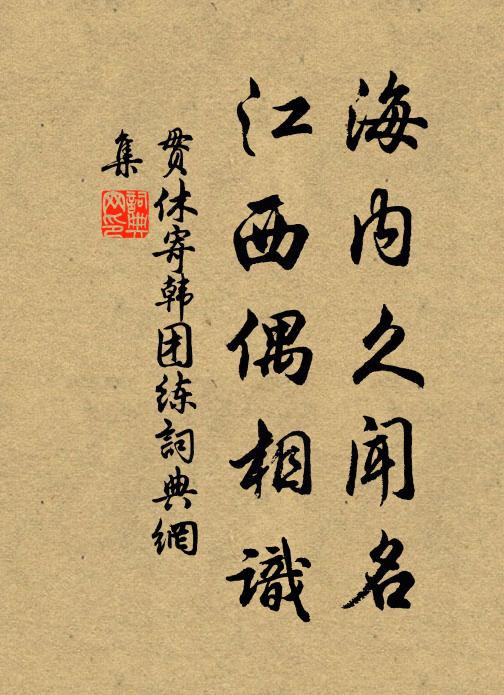 海内久闻名
江西偶相識
贯休寄韩团练詞典網
集
詞典网印